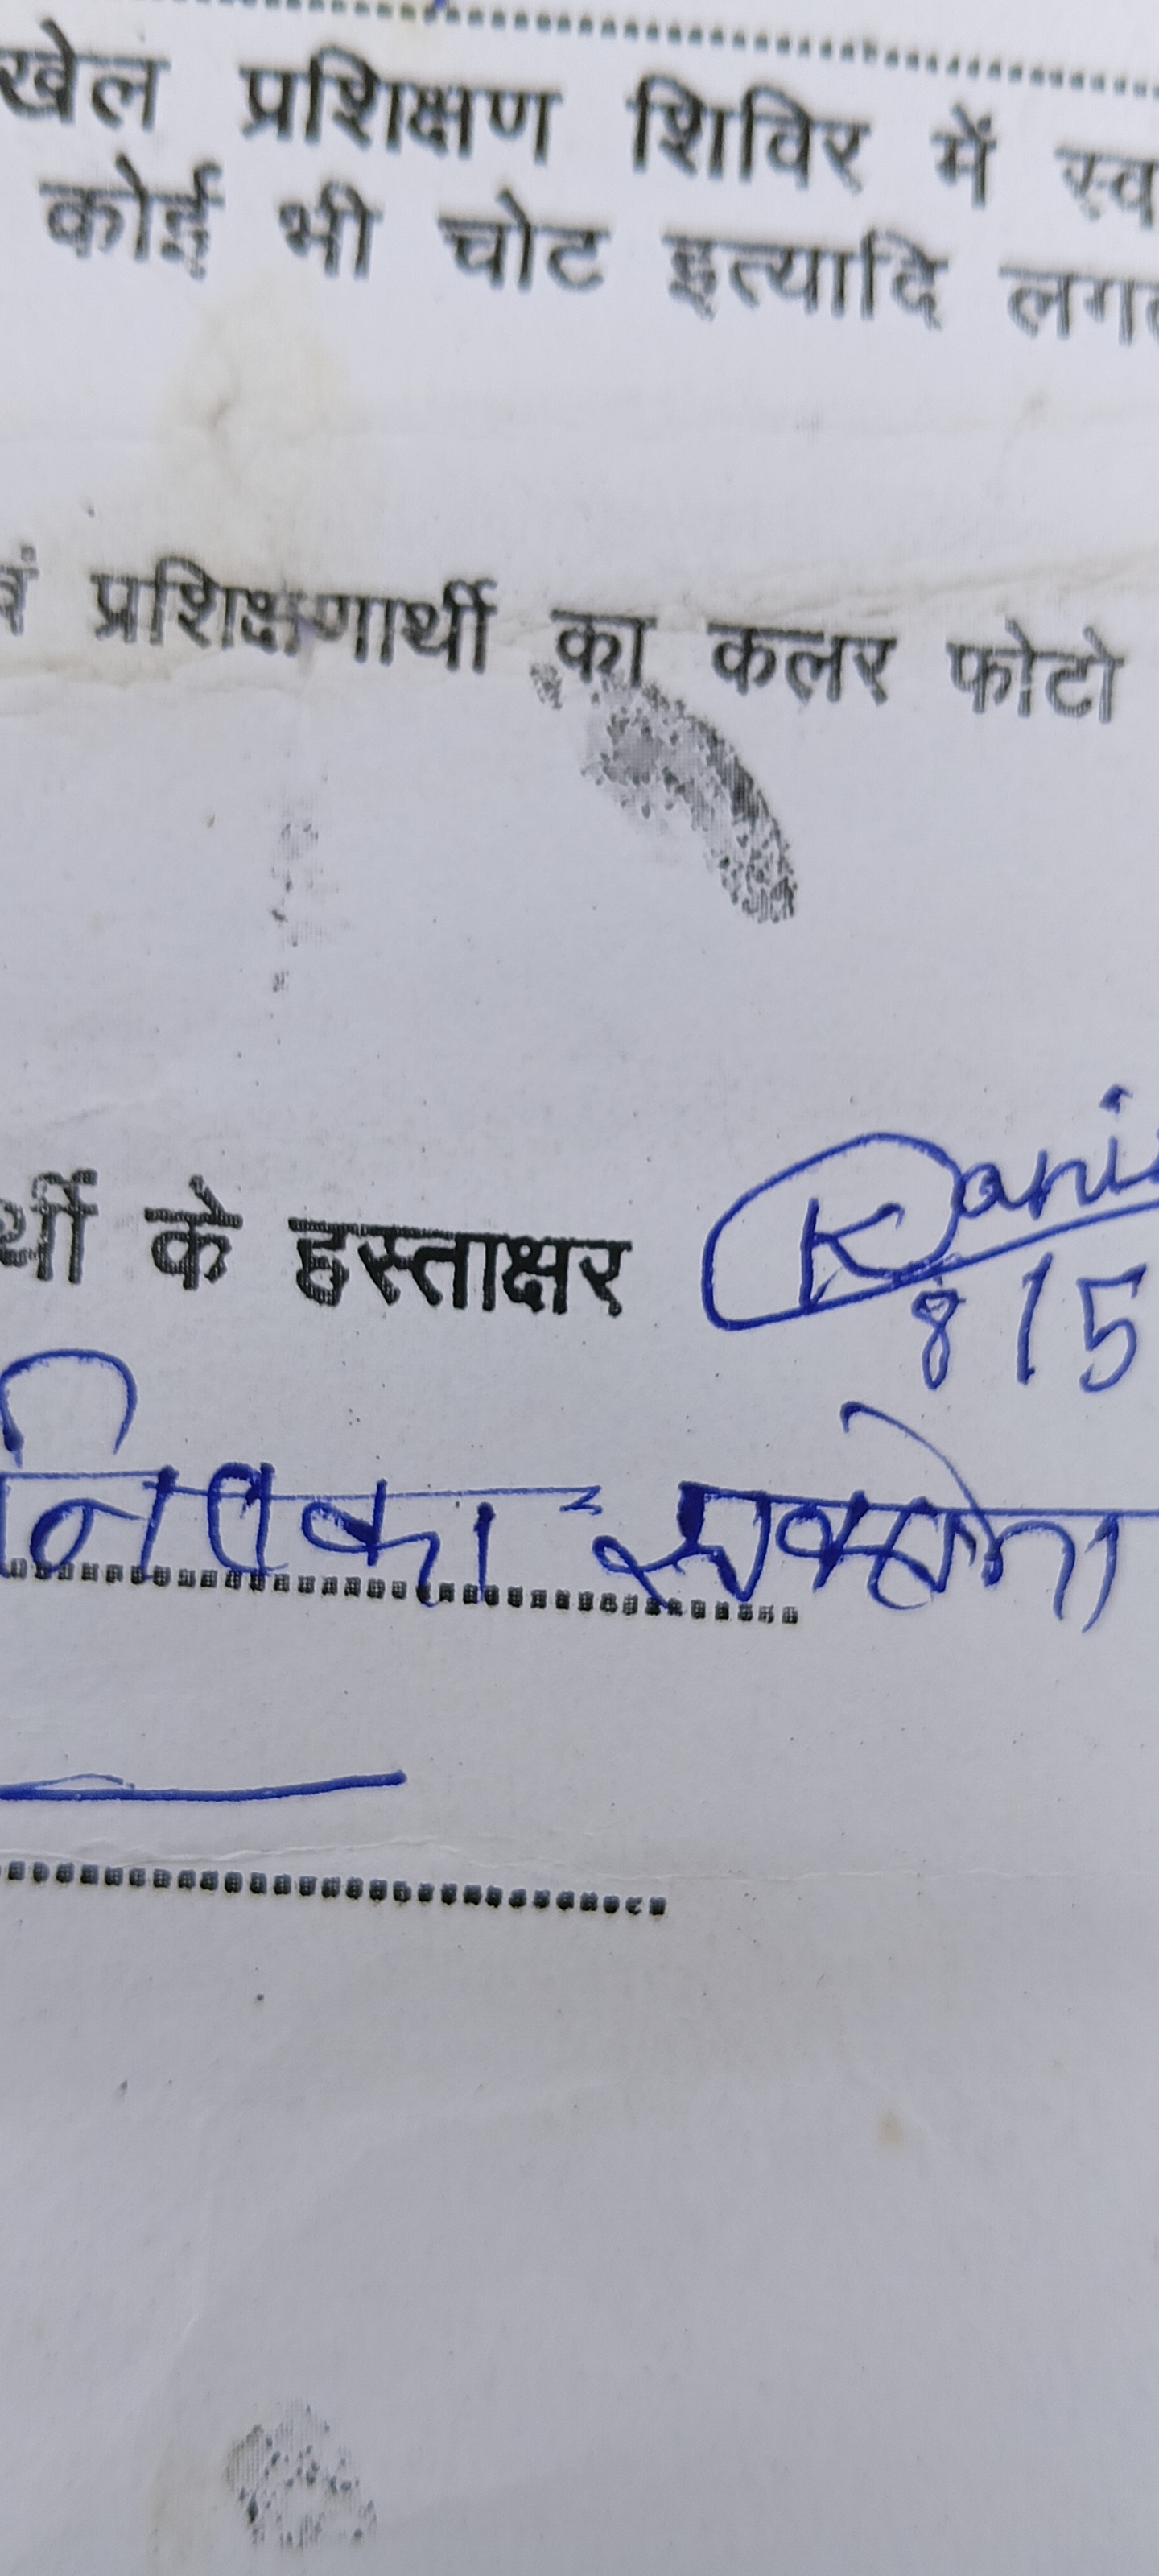 खेल प्रशिक्षण शिविर में स्व
कोई भी चोट इत्यादि लगत
वं प्रशिक्षणार्थी का कलर फोटो
र्थी के हस्ताक्षर Kani
8/5